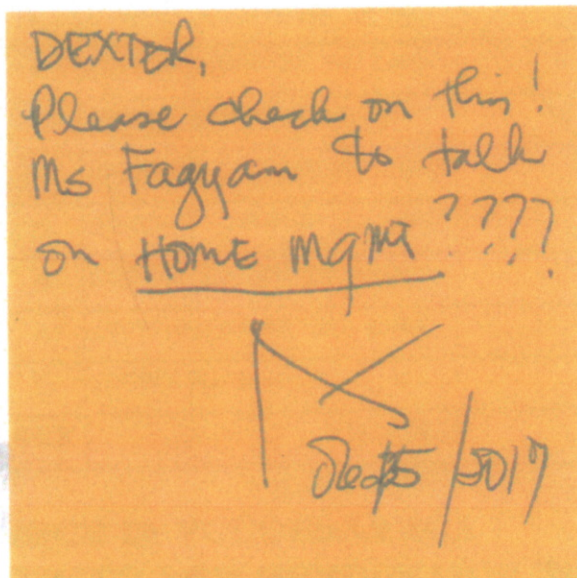 DEXTER,
Please check on this!
Ms Fagyam to talk
on HOME MGMT????
/2017